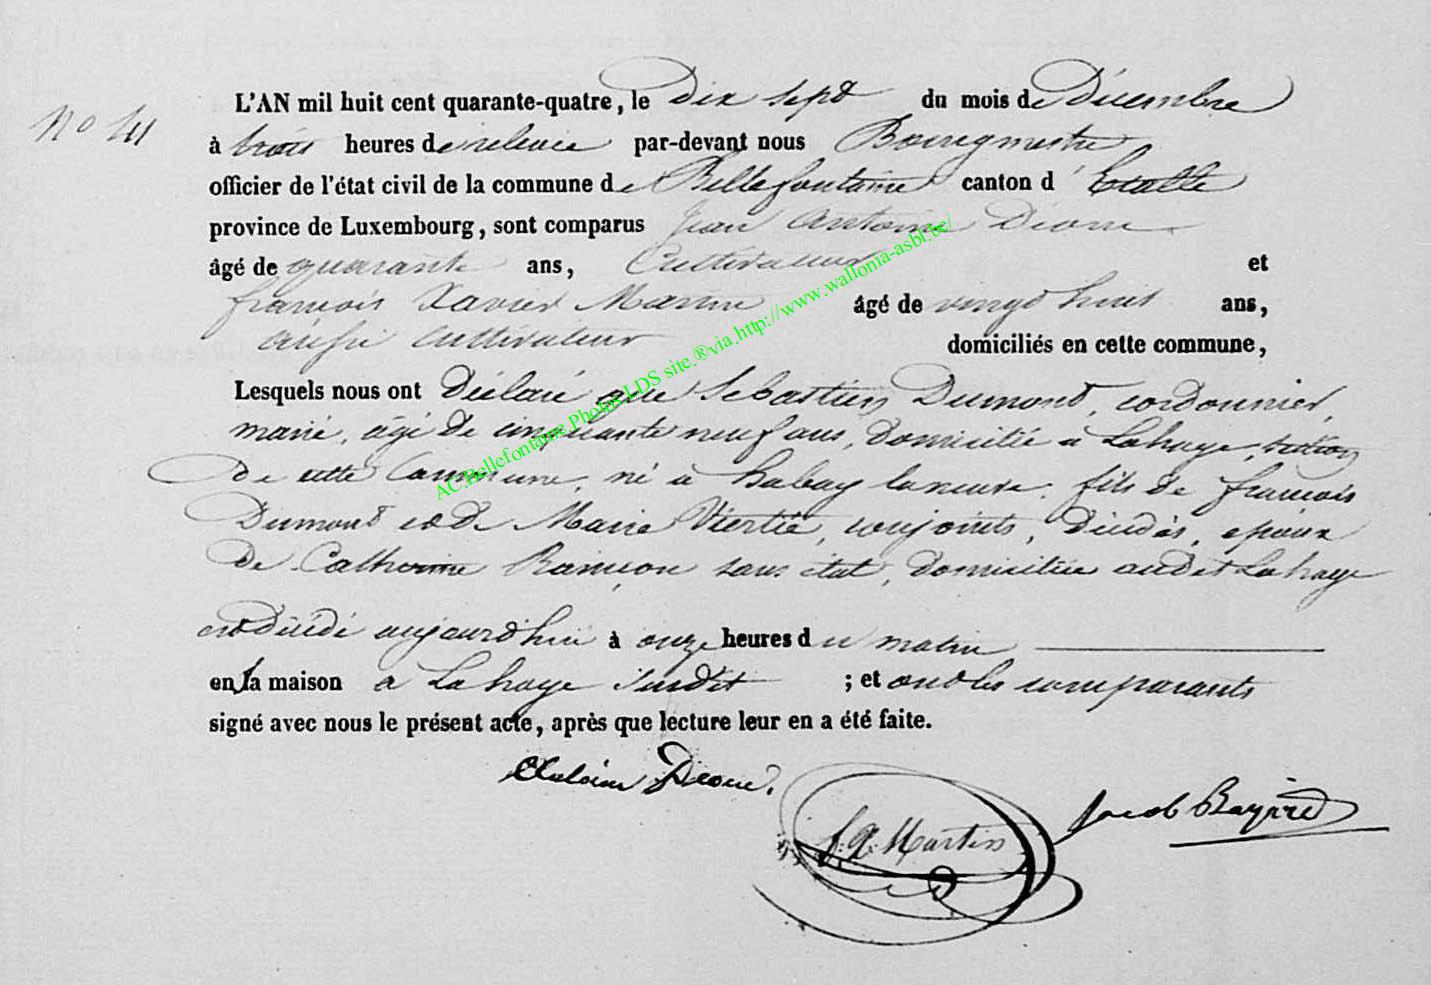 No 41
L'AN mil huit cent quarante-quatre, le Dix sept du mois de Décembre
à trois heures de relevée par-devant nous Bourgmestre
officier de l'état civil de la commune de Bellefontaine canton d' Etalle
province de Luxembourg, sont comparus Jean Antoine
âgé de quarante ans, Cultivateur et
françois Xavier âgé de vingt huit ans,
aussi cultivateur domiciliés en cette commune,
Lesquels nous ont Déclaré que Sébastien Dumont, cordonnier,
marié, âgé de cinquante neuf ans, domicilié a Lahage, section
de cette Commune, né à habay laneuve, fils de françois
Dumont et de Marie, conjoints, décédés, epoux
de Catherine sans état, domiciliée audit Lahage
est Décédé aujourd'hui à onze heures du matin
en sa maison a Lahage susdit ; et ont les comparants
signé avec nous le présent acte, après que lecture leur en a été faite.
f. X. Martin
Jacob
AC.Bellefontaine.Photos.LDS site.®via.http://www.wallonia-asbl.be/